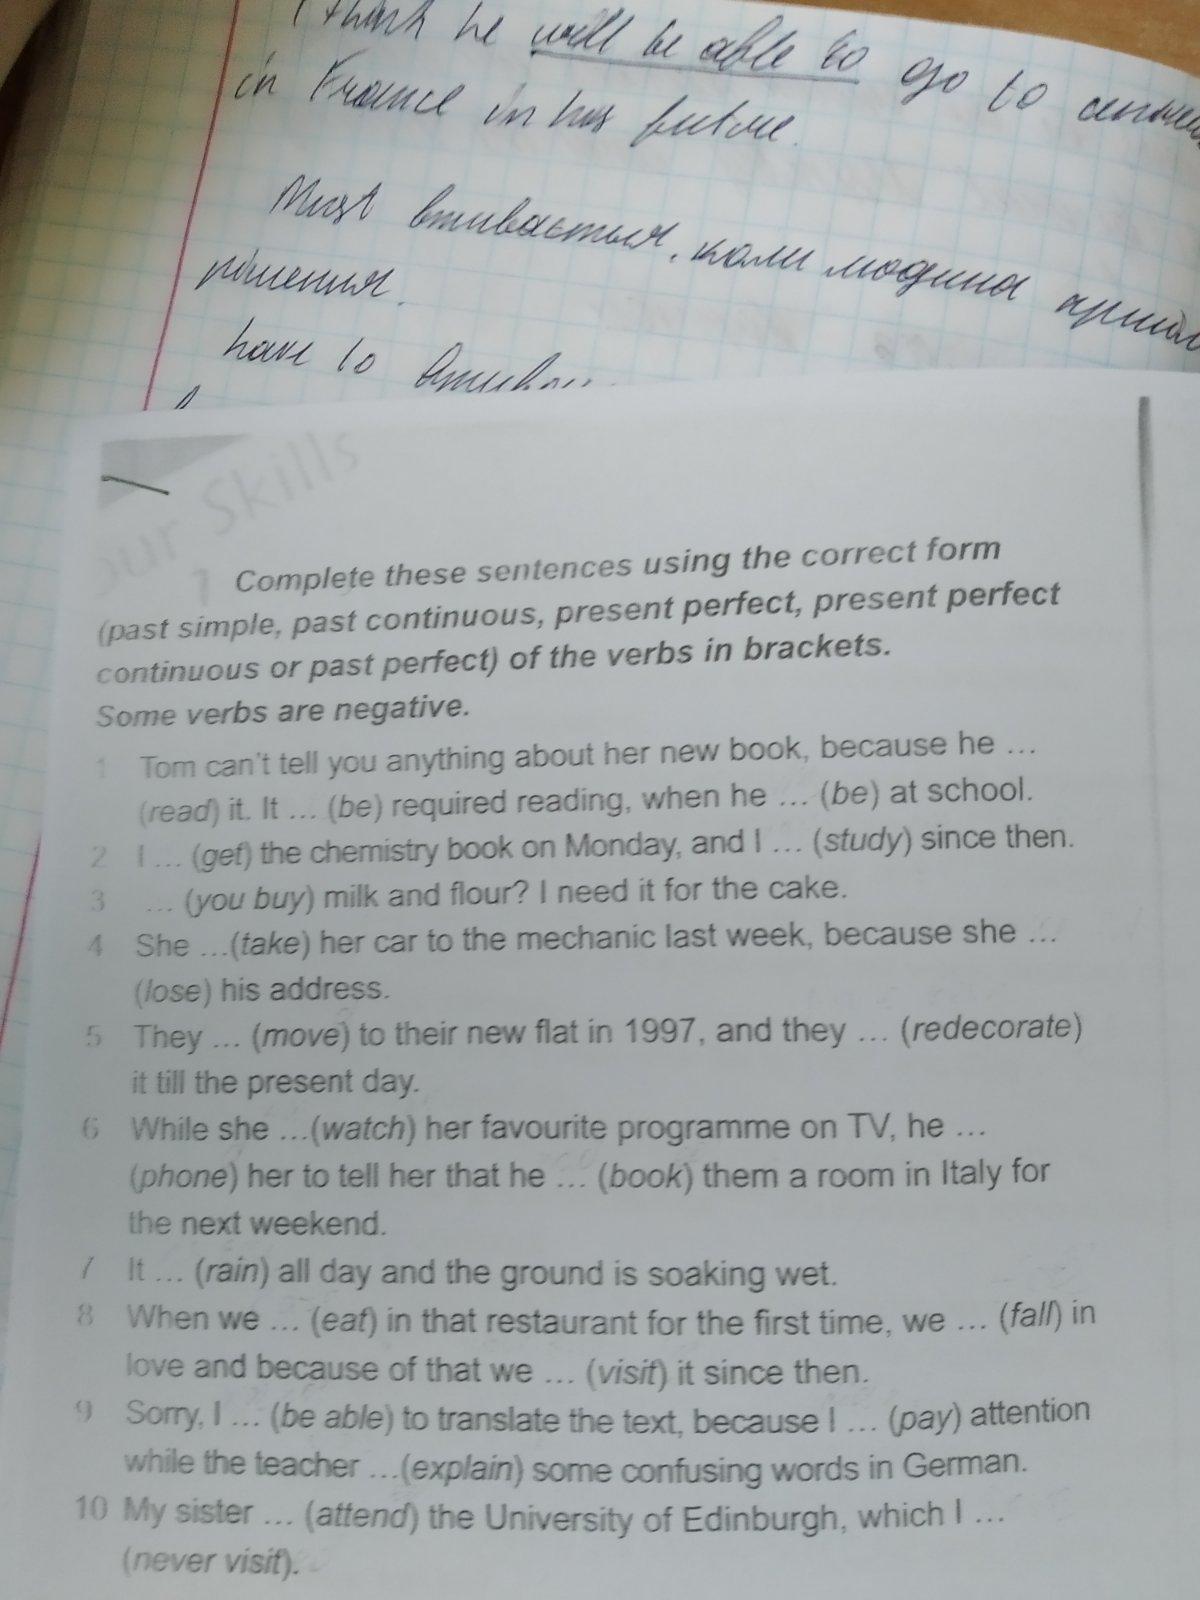 I think he will be able to go to
in France in his future.
Must вживається, коли людина
рішення.
have to
our Skills
1 Complete these sentences using the correct form
(past simple, past continuous, present perfect, present perfect
continuous or past perfect) of the verbs in brackets.
Some verbs are negative.
1 Tom can't tell you anything about her new book, because he ...
(read) it. It ... (be) required reading, when he ... (be) at school.
2 I ... (get) the chemistry book on Monday, and I ... (study) since then.
3 ... (you buy) milk and flour? I need it for the cake.
4 She ...(take) her car to the mechanic last week, because she ...
(lose) his address.
5 They ... (move) to their new flat in 1997, and they ... (redecorate)
it till the present day.
6 While she ...(watch) her favourite programme on TV, he ...
(phone) her to tell her that he ... (book) them a room in Italy for
the next weekend.
7 It ... (rain) all day and the ground is soaking wet.
8 When we ... (eat) in that restaurant for the first time, we ... (fall) in
love and because of that we ... (visit) it since then.
9 Sorry, I ... (be able) to translate the text, because I ... (pay) attention
while the teacher ...(explain) some confusing words in German.
10 My sister ... (attend) the University of Edinburgh, which I ...
(never visit).